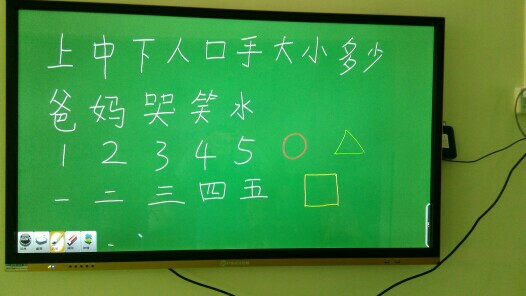 上中下人口手大小多少
爸妈哭笑水
1 2 3 4 5
一二三四五